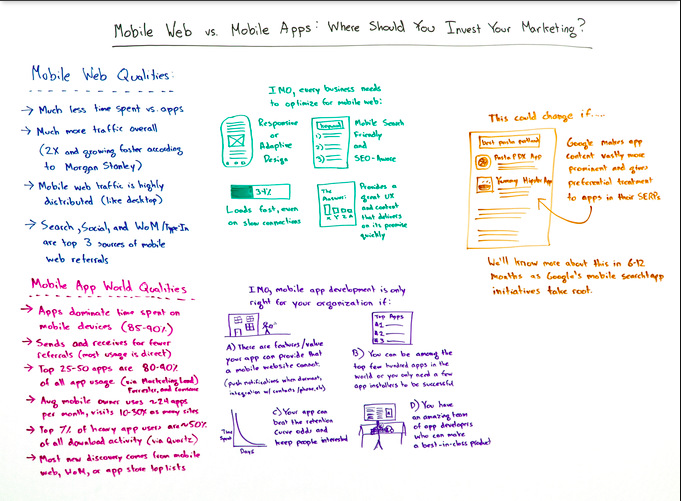 Mobile Web vs. Mobile Apps: Where Should You Invest Your Marketing?
Mobile Web Qualities:
→ Much less time spent vs. apps
→ Much more traffic overall
(2X and growing faster according
to Morgan Stanley)
→ Mobile web traffic is highly
distributed (like desktop)
→ Search, Social, and WoM/Type-In
are top 3 sources of mobile
web referrals
IMO, every business needs
to optimize for mobile web:
Responsive
or
Adaptive
Design
Keyword
1)
2)
3)
Mobile Search
Friendly
and
SEO-Aware
34%
Loads fast, even
on slow connections
The
Answer:
Provides a
great UX
and content
that delivers
on its promise
quickly
This could change if....
best pasta portland
Pasta PDX App
Yummy Hipster App
Google makes app
content vastly more
prominent and gives
preferential treatment
to apps in their SERPs
We'll know more about this in 6-12
months as Google's mobile search+app
initiatives take root.
Mobile App World Qualities
→ Apps dominate time spent on
mobile devices (85-90%)
→ Sends and receives far fewer
referrals (most usage is direct)
→ Top 25-50 apps are 80-90%
of all app usage (via Marketing Land)
Forrester, and Comscore
→ Avg mobile owner uses ~24 apps
per month, visits 10-30X as many sites
→ Top 7% of heavy app users are ~50%
of all download activity (via Quartz)
→ Most new discovery comes from mobile
web, WoM, or app store top lists
IMO, mobile app development is only
right for your organization if:
A) There are features/value
your app can provide that
a mobile website cannot.
(push notifications when dormant,
integration w/ contacts/phone, etc)
Top Apps
#1
#2
#3
B) You can be among the
top few hundred apps in the
world or you only need a few
app installers to be successful
Time
Spent
Days
C) Your app can
beat the retention
curve odds and
keep people interested
D) You have
an amazing team
of app developers
who can make
a best-in-class product